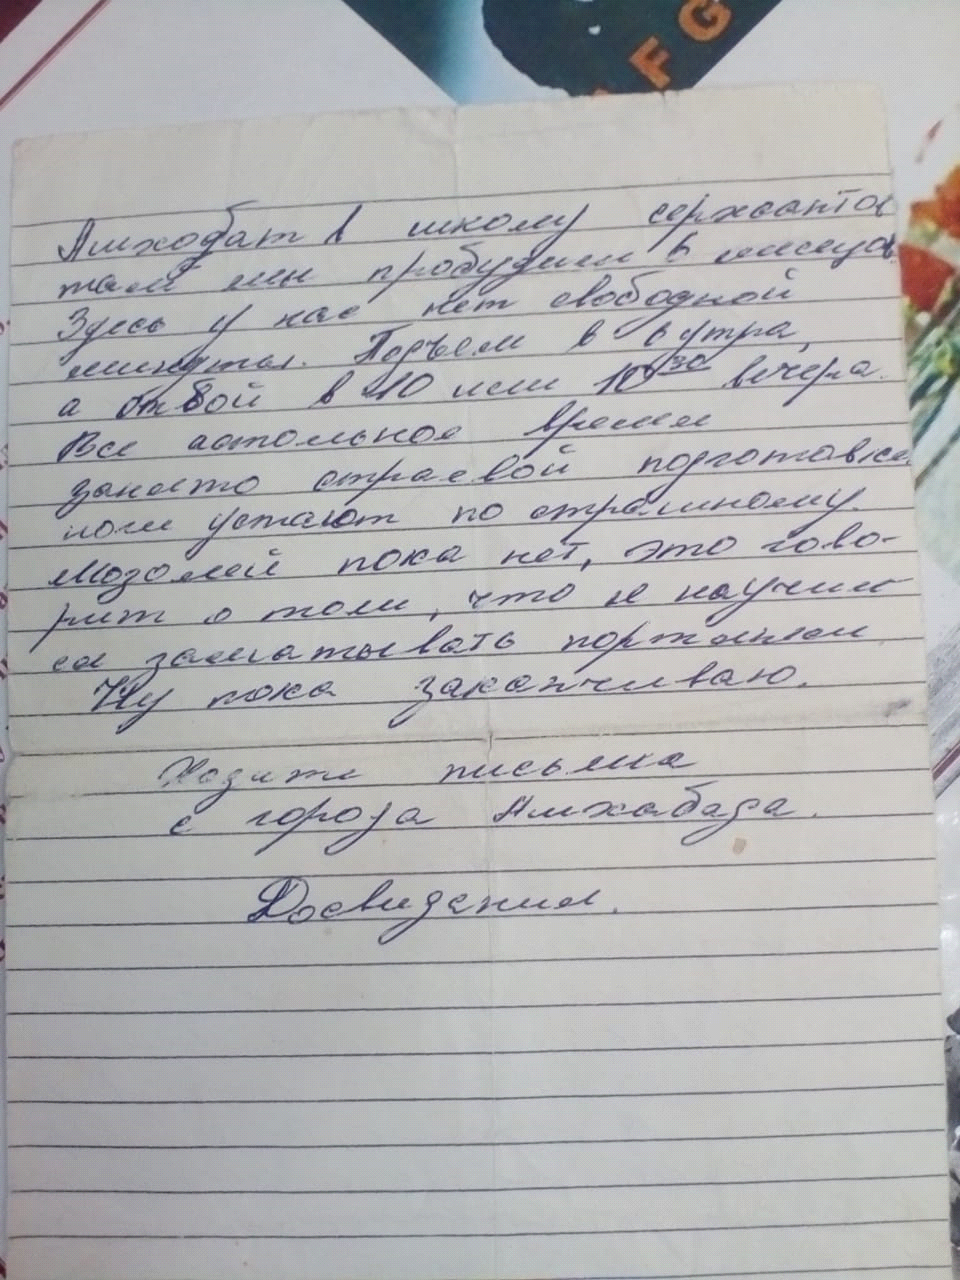 F G
Ашхобат в школу сержантов
там мы пробудем 6 месяцов.
Здесь у нас нет свободной
минуты. Подъем в 6 утра,
а отбой в 10 или 10 30 вечера.
Все астольное время
занято страевой подготовкой
ноги устают по страшному.
Мозолей пока нет, это гово-
рит о том, что я научил
ся заматывать портянки
Ну пока заканчиваю.
письма
с города Ашхабада.
Досвидания.